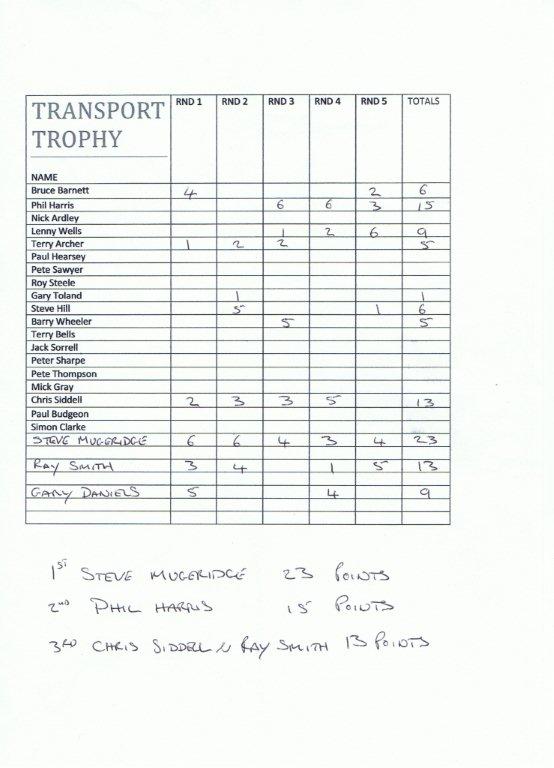 TRANSPORT TROPHY RND 1 RND 2 RND 3 RND 4 RND 5 TOTALS
NAME
Bruce Barnett 4 2 6
Phil Harris 6 6 3 15
Nick Ardley
Lenny Wells 1 2 6 9
Terry Archer 1 2 2 5
Paul Hearsey
Pete Sawyer
Roy Steele
Gary Toland 1 1
Steve Hill 5 1 6
Barry Wheeler 5 5
Terry Bells
Jack Sorrell
Peter Sharpe
Pete Thompson
Mick Gray
Chris Siddell 2 3 3 5 13
Paul Budgeon
Simon Clarke
STEVE MUGERIDGE 6 6 4 3 4 23
RAY SMITH 3 4 1 5 13
GARY DANIELS 5 4 9
1ST STEVE MUGERIDGE 23 POINTS
2ND PHIL HARRIS 15 POINTS
3RD CHRIS SIDDELL N RAY SMITH 13 POINTS